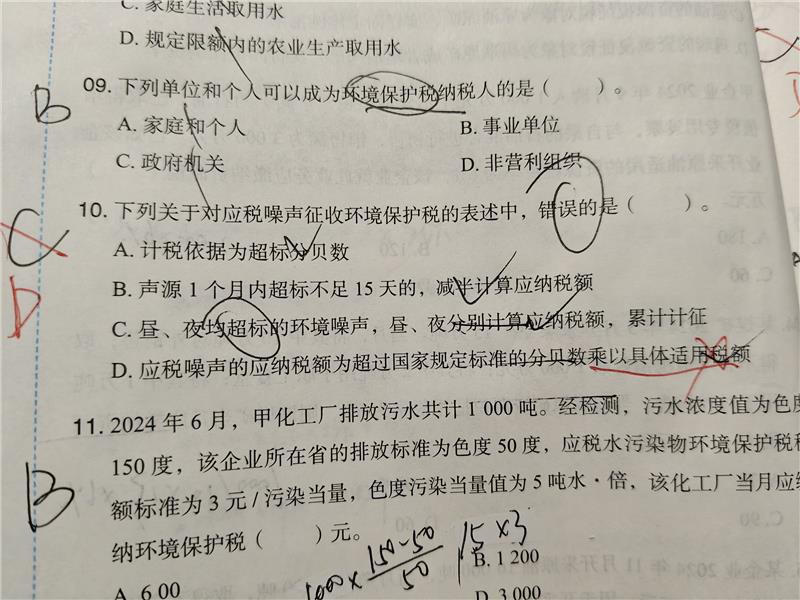 C. 家庭生活取用水
D. 规定限额内的农业生产取用水
B
09. 下列单位和个人可以成为环境保护税纳税人的是（ ）。
A. 家庭和个人 B. 事业单位
C. 政府机关 D. 非营利组织
C
D
10. 下列关于对应税噪声征收环境保护税的表述中，错误的是（ ）。
A. 计税依据为超标分贝数
B. 声源 1 个月内超标不足 15 天的，减半计算应纳税额
C. 昼、夜均超标的环境噪声，昼、夜分别计算应纳税额，累计计征
D. 应税噪声的应纳税额为超过国家规定标准的分贝数乘以具体适用税额
B
11. 2024 年 6 月，甲化工厂排放污水共计 1 000 吨。经检测，污水浓度值为色度
150 度，该企业所在省的排放标准为色度 50 度，应税水污染物环境保护税税
额标准为 3 元 / 污染当量，色度污染当量值为 5 吨水 · 倍，该化工厂当月应缴
纳环境保护税（ ）元。
1000 × (150-50)/50 /5 × 3
A. 6 00 B. 1 200
D. 3 000